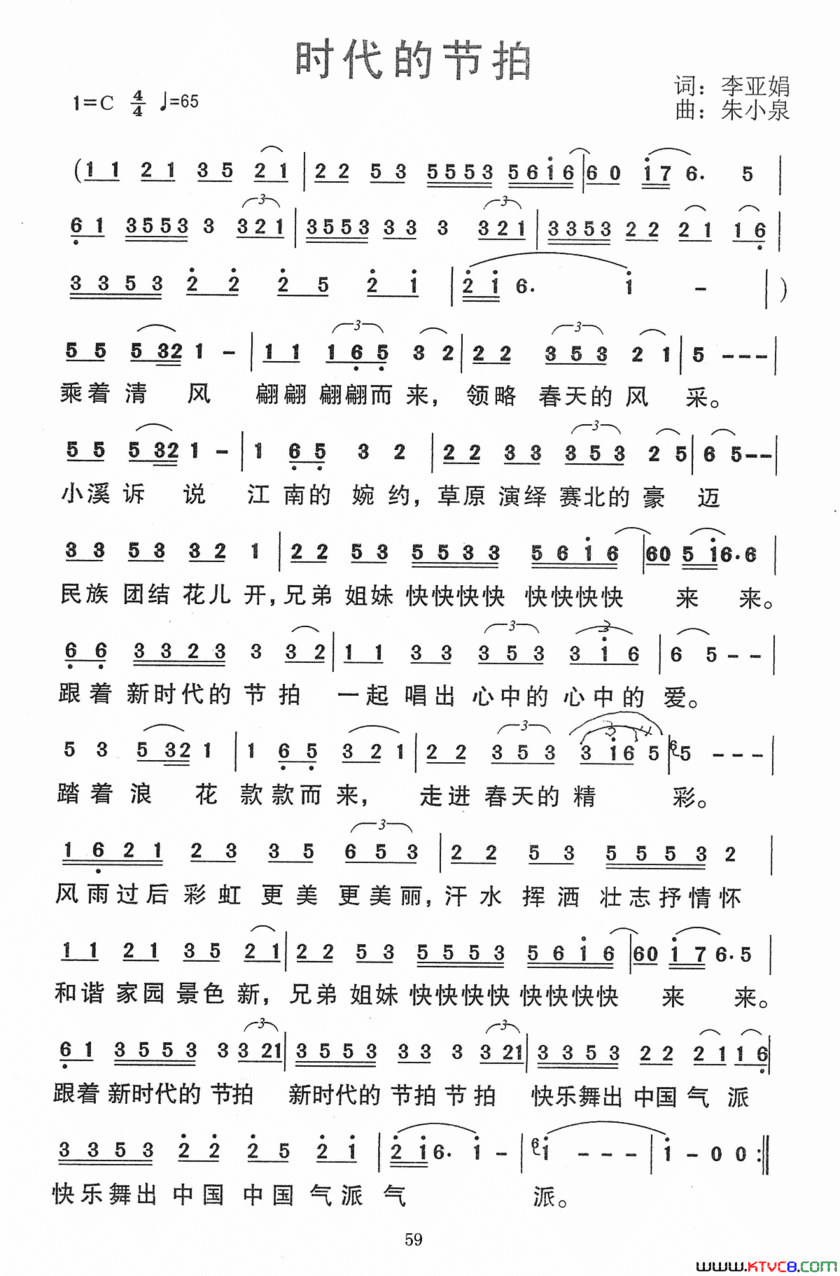 时代的节拍
1=C 4/4 ♩=65
词：李亚娟
曲：朱小泉
(1 1 2 1 3 5 2 1 | 2 2 5 3 5 5 5 3 5 6 i 6 | 6 0 i 7 6. 5 |
6 1 3 5 5 3 3 3 2 1 | 3 5 5 3 3 3 3 3 2 1 | 3 3 5 3 2 2 2 1 1 6 |
3 3 5 3 2 2 2 5 2 i | 2 i 6. i - | )
5 5 5 3 2 1 - | 1 1 1 6 5 3 2 | 2 2 3 5 3 2 1 | 5 - - - |
乘着清风 翩翩翩翩而来，领略春天的风采。
5 5 5 3 2 1 - | 1 6 5 3 2 | 2 2 3 3 3 5 3 2 5 | 6 5 - - |
小溪诉说江南的婉约，草原演绎赛北的豪迈
3 3 5 3 3 2 1 | 2 2 5 3 5 5 3 3 5 6 i 6 | 6 0 5 i 6. 6
民族团结花儿开，兄弟姐妹快快快快 快快快快 来来。
6 6 3 3 2 3 3 3 2 | 1 1 3 3 3 5 3 3 i 6 | 6 5 - - |
跟着新时代的节拍 一起唱出心中的心中的爱。
5 3 5 3 2 1 | 1 6 5 3 2 1 | 2 2 3 5 3 3 i 6 5 | 6 5 - - - |
踏着浪花款款而来， 走进春天的精彩。
1 6 2 1 2 3 3 5 6 5 3 | 2 2 5 3 5 5 5 3 2 |
风雨过后彩虹更美更美丽，汗水挥洒壮志抒情怀
1 1 2 1 3 5 2 1 | 2 2 5 3 5 5 5 3 5 6 i 6 | 6 0 i 7 6. 5 |
和谐家园景色新，兄弟姐妹快快快快 快快快快 来来。
6 1 3 5 5 3 3 3 2 1 | 3 5 5 3 3 3 3 3 2 1 | 3 3 5 3 2 2 2 1 1 6 |
跟着新时代的节拍 新时代的节拍节拍 快乐舞出中国气派
3 3 5 3 2 2 2 5 2 i | 2 i 6. i - | 6 i - - - | i - 0 0 :||
快乐舞出中国中国气派气 派。
59
www.KTVC8.com